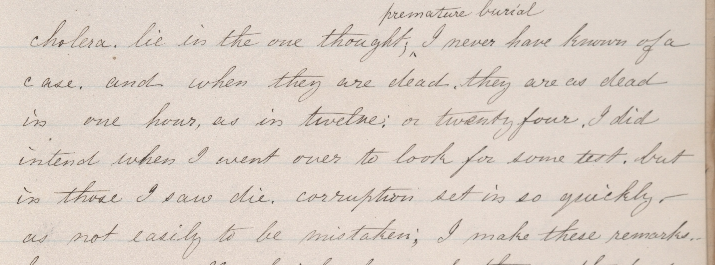 premature burial
cholera. lie in the one thought; I never have known of a
case. and when they are dead, they are as dead
in one hour, as in twelve; or twenty four. I did
intend when I went over to look for some test. but
in those I saw die. corruption set in so quickly.
as not easily to be mistaken; I make these remarks..